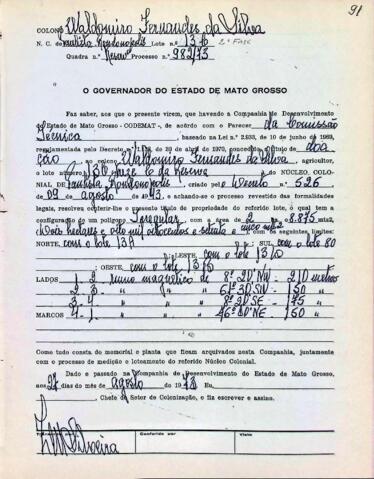 91
COLONO Waldomiro Fernandes da Silva
N. C. de Paulista Rondonópolis Lote n.º 13-C 2ª Fase
Quadra n.º Reserva Processo n.º 982/73
O GOVERNADOR DO ESTADO DE MATO GROSSO
Faz saber, aos que o presente virem, que havendo a Companhia de Desenvolvimento
do Estado de Mato Grosso - CODEMAT -, de acordo com o Parecer da Comissão
Técnica, baseado na Lei n.º 2.933, de 10 de junho de 1969,
regulamentada pelo Decreto de abril de 1970, concedido, a título de doa
ção ao colono Waldomiro Fernandes da Silva, agricultor,
o lote número 13 C da Reserva do NÚCLEO, COLO-
NIAL DE Paulista Rondonópolis, criado pelo Decreto n.º 526
de 09 de agosto de e achando-se o processo revestido das formalidades
legais, resolves conferir-lhe o presente título de propriedade do referido lote, o qual tem a
configuração de um polígono irregular com a área de 2 ha 8.875 mts2,
(dois hectares e oito mil oitocentos e setenta e cinco mts2) com os seguintes limites:
NORTE, com o lote 13A SUL, com o lote 80
LESTE, com o lote 13/D
OESTE, com o lote 13/B
LADOS 1 2 rumo magnético de 210 metros
2 3 150
3 4 175
MARCOS 4 1 150
Como tudo consta do memorial e planta que ficam arquivados nesta Companhia, juntamente
com o processo de medição e loteamento do referido Núcleo Colonial.
Dado e passado na Companhia de Desenvolvimento do Estado de Mato Grosso,
aos 27 dias do mês de agosto de 1973 Eu,
Chefe do Setor de Colonização, o fiz escrever e assino.
Conferido por Visto